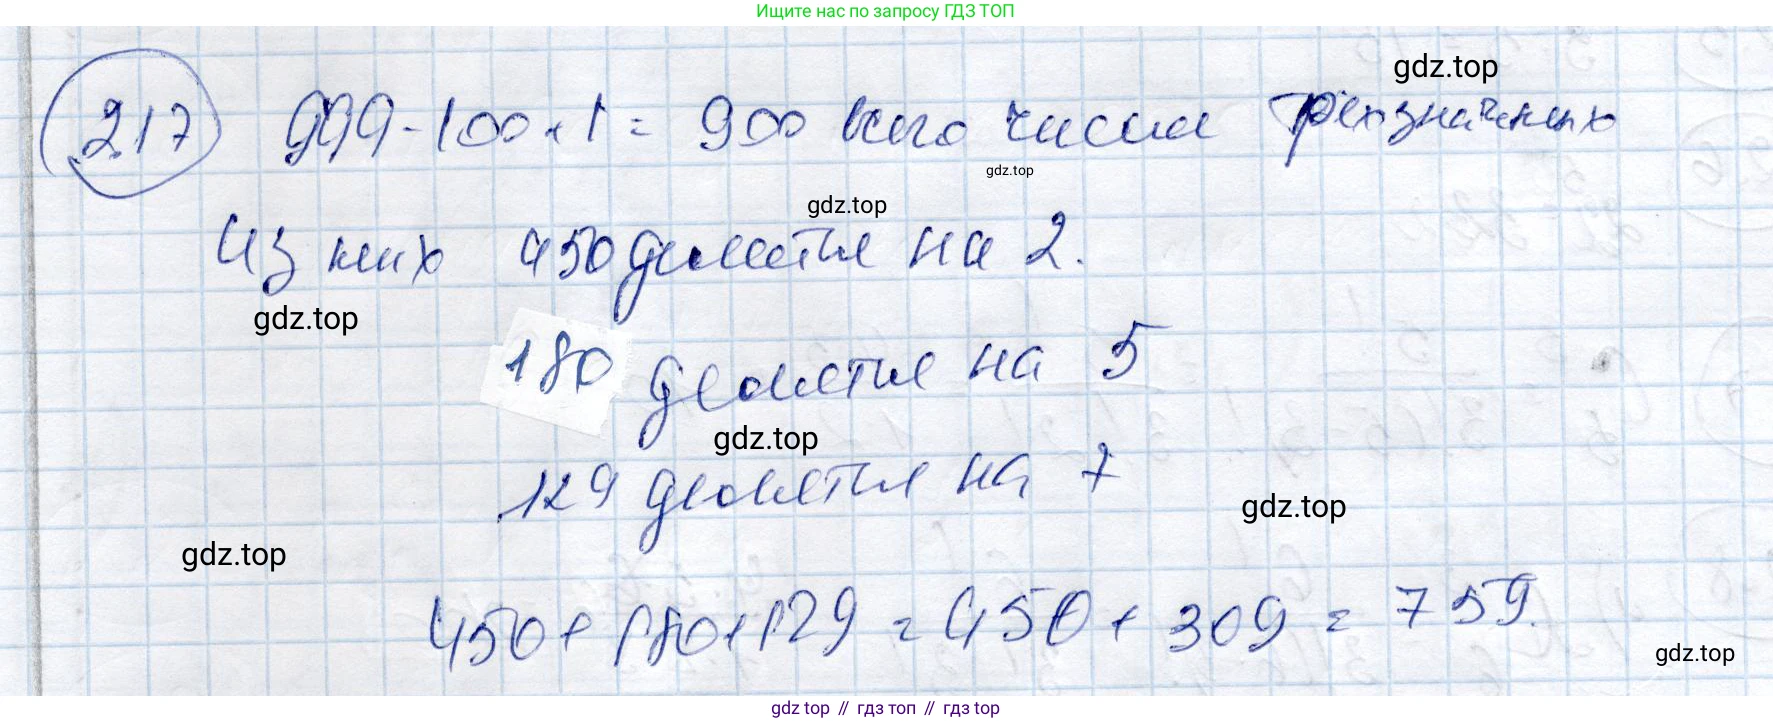 Ищите нас по запросу ГДЗ ТОП
gdz.top
217 999-100+1= 900 всего чисел трёхзначных
gdz.top
gdz.top
Из них 450 делятся на 2.
gdz.top
180 делятся на 5
gdz.top
129 делятся на 7
gdz.top
gdz.top
450+180+129 = 450 + 309 = 759.
gdz.top
gdz top // гдз топ // гдз top